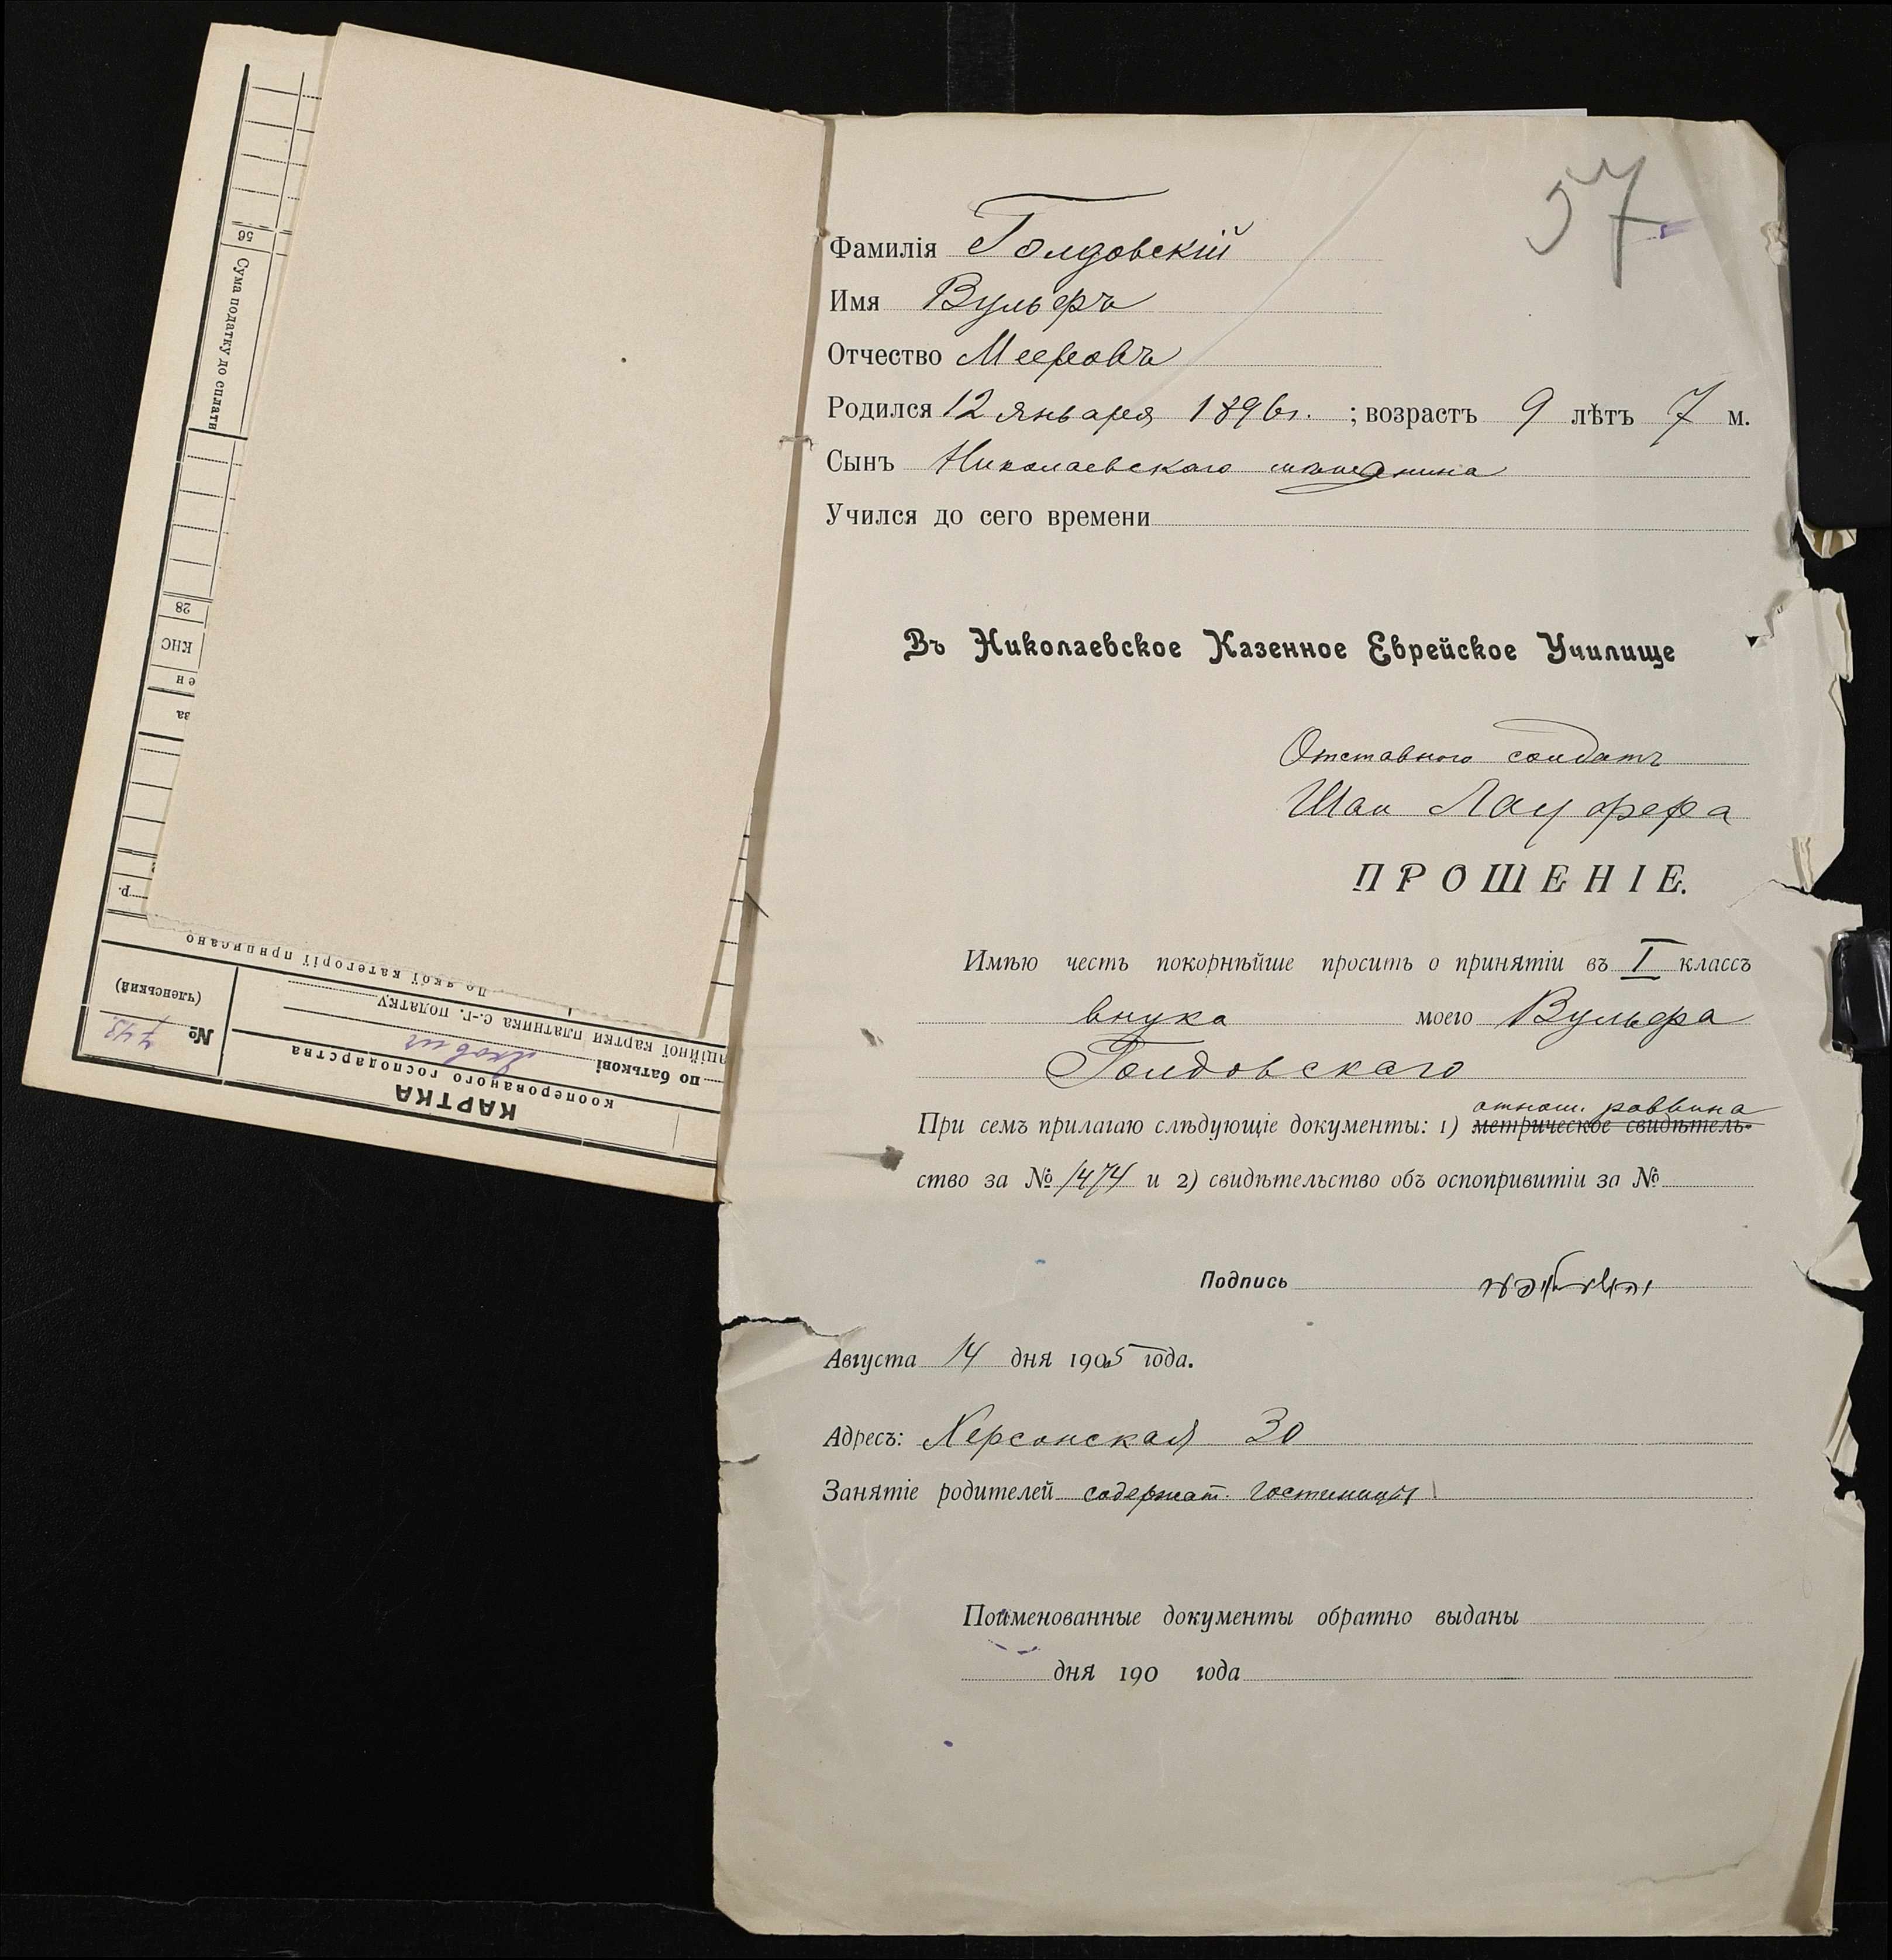 57
Фамилія Голдовскій
Имя Вульфъ
Отчество Мееровъ
Родился 12 января 1896 г. ; возрастъ 9 лѣтъ 7 м.
Сынъ Николаевскаго мѣщанина
Учился до сего времени
Въ Николаевское Казенное Еврейское Училище
Отставного солдата
Шаи Лауфера
ПРОШЕНІЕ.
Имѣю честь покорнѣйше просить о принятіи въ I классъ
внука моего Вульфа
Голдовскаго
отнош. раввина
При семъ прилагаю слѣдующіе документы: 1) метрическое свидѣтель-
ство за № 1474 и 2) свидѣтельство объ оспопривитіи за №
Подпись
Августа 14 дня 1905 года.
Адресъ: Херсонская 30
Занятіе родителей содержат. гостиницы
Поименованные документы обратно выданы
дня 190 года
КАРТКА
кооперованого господарства
по батькові
аційної картки платника с.-г. податку
По якої категорії приписано
№ 743
(членський)
р.
за
ен
КНС
28
Сума податку до сплати
56